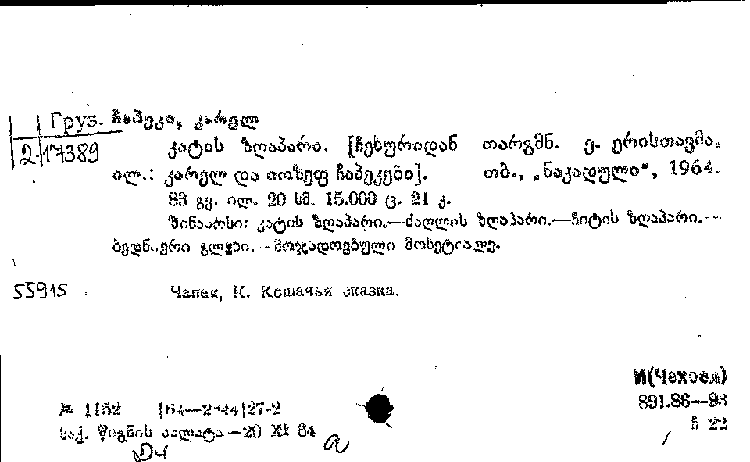 Груз. ჩაპეკი, კარელ
2-17389 კატის ზღაპარი. [ჩეხურიდან თარგმნ. ე. ერისთავმა.
ილ.: კარელ და იოზეფ ჩაპეკები]. თბ., „ნაკადული“, 1964.
83 გვ. ილ. 20 სმ. 15.000 ც. 21 კ.
შინაარსი: კატის ზღაპარი.—ძაღლის ზღაპარი.—ჩიტის ზღაპარი.—
ბედნიერი გლეხი.—მოჯადოებული მოხეტიალე.
55915 Чапек, К. Кошачья сказка.
И(Чехосл)
№ 1152 [64—2424]27-2 891.86—93
საქ. წიგნის პალატა —20 XI 64 ჩ 22